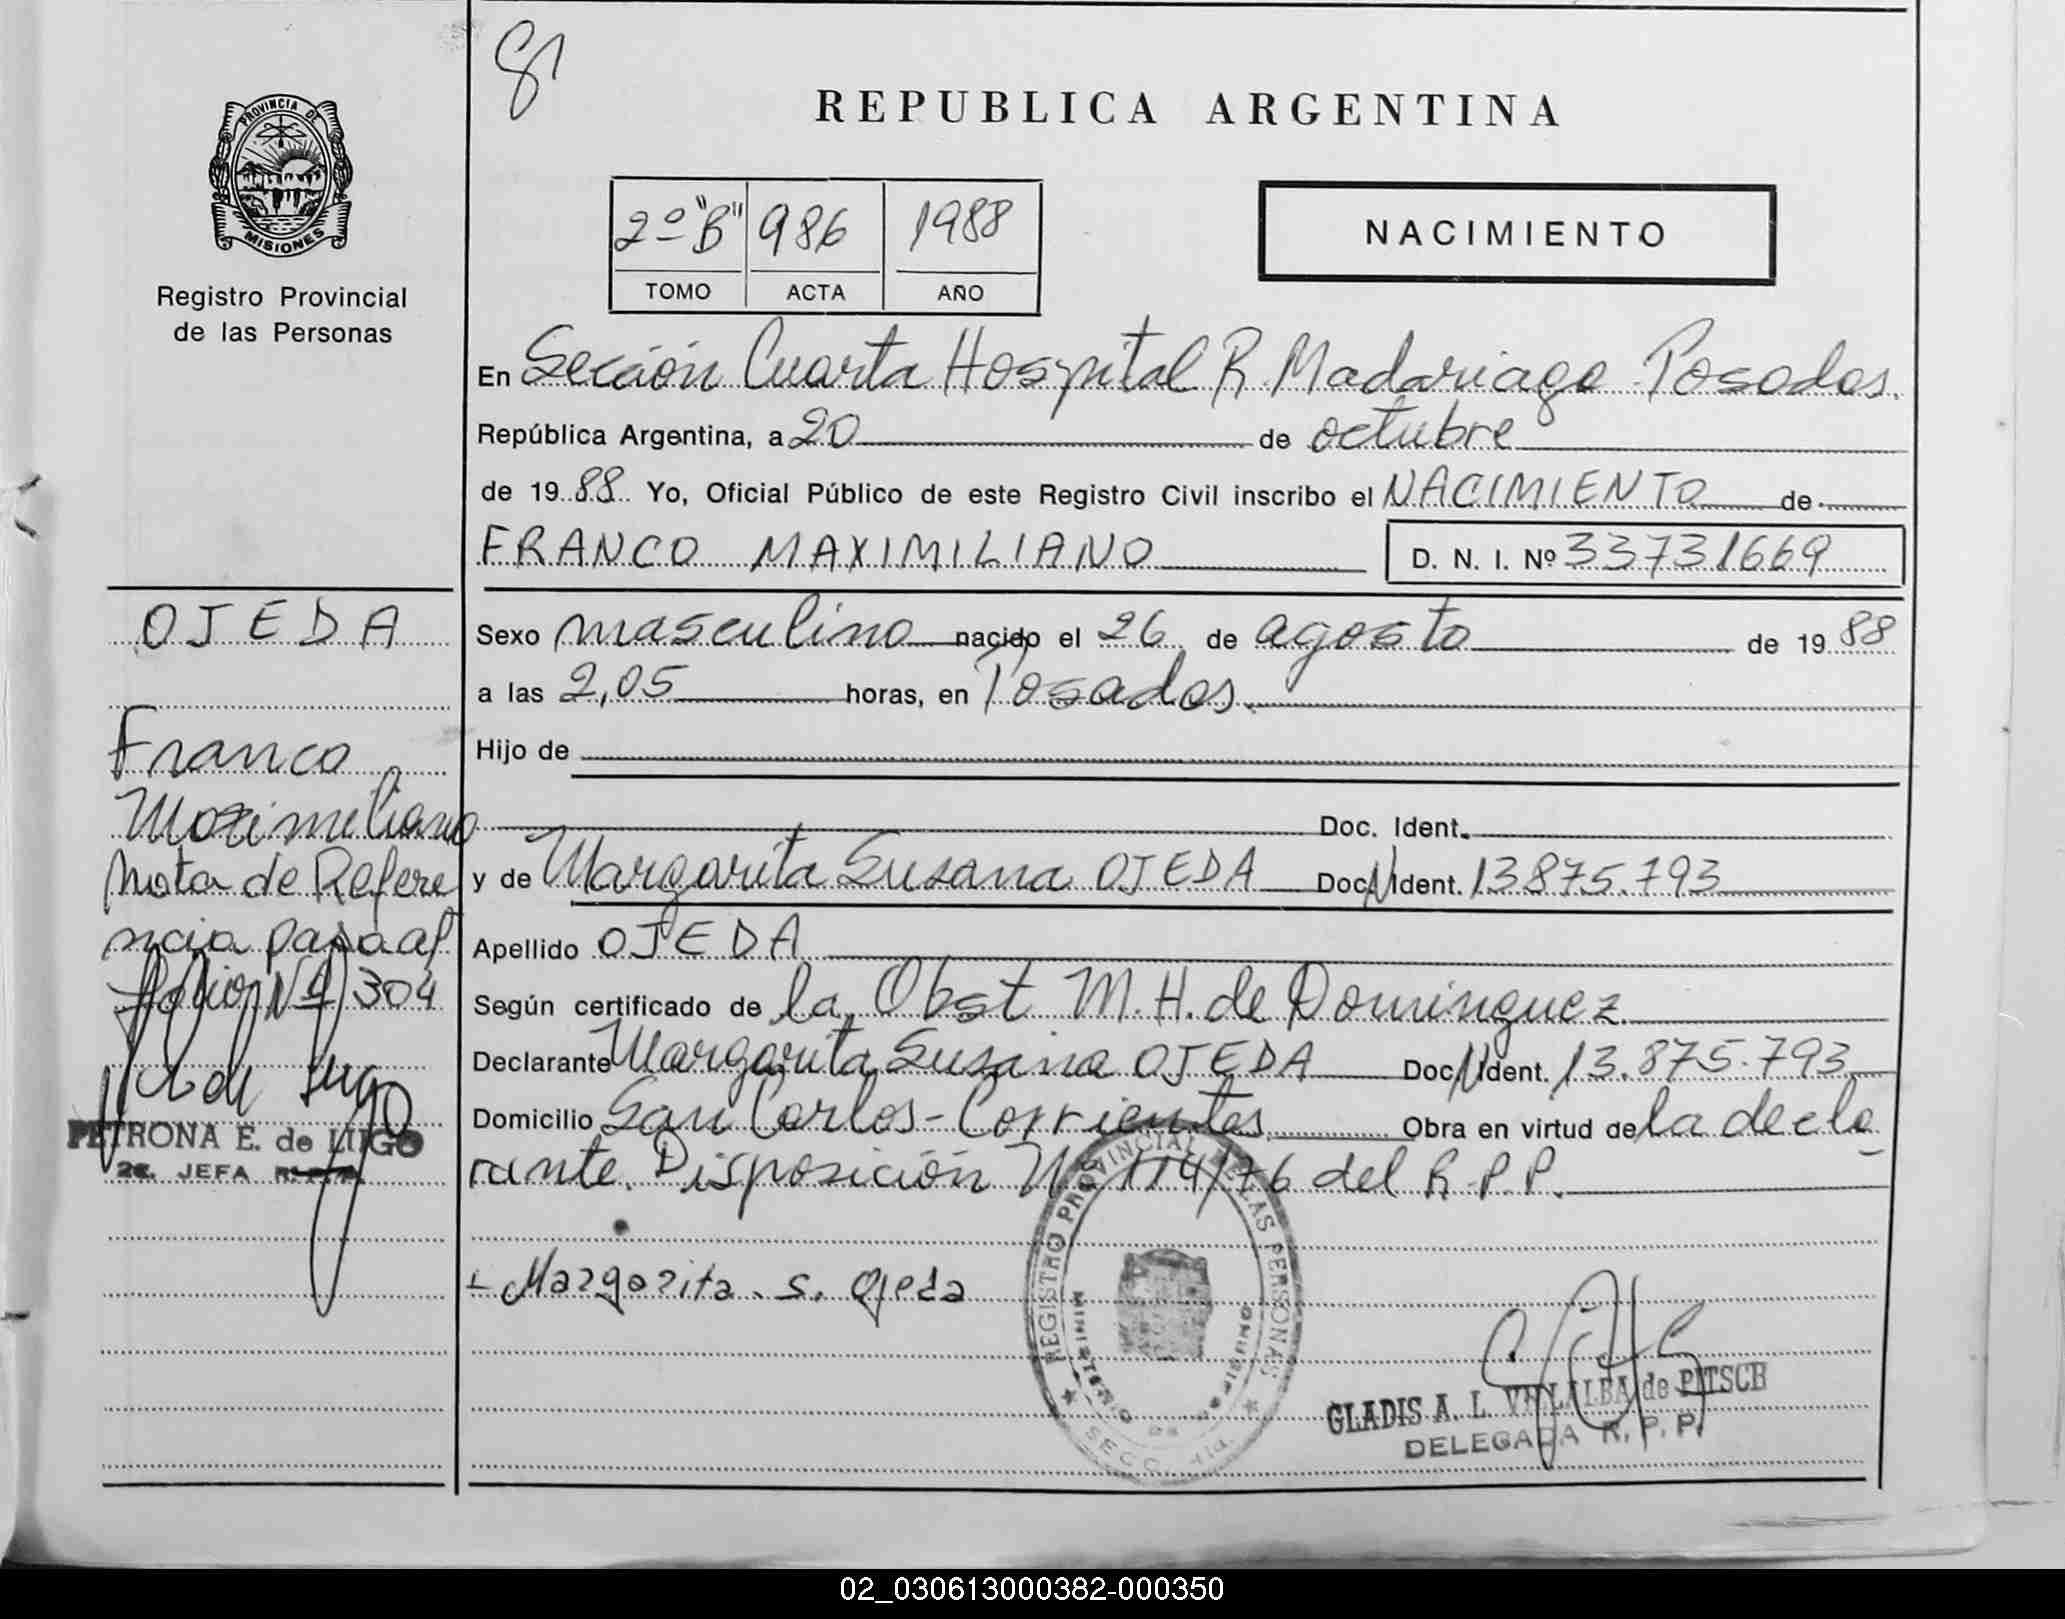 PROVINCIA DE
MISIONES
Registro Provincial
de las Personas
REPUBLICA ARGENTINA
2º "B" 986 1988
TOMO ACTA AÑO
NACIMIENTO
En Sección Cuarta Hospital R. Madariaga Posadas.
República Argentina, a 20 de octubre
de 19 88 Yo, Oficial Público de este Registro Civil inscribo el NACIMIENTO de
FRANCO MAXIMILIANO D. N. I. Nº 33731669
Sexo masculino nacido el 26 de agosto de 19 88
a las 2,05 horas, en Posadas.
Hijo de
Doc. Ident.
y de Margarita Susana OJEDA Doc N Ident. 13875.793
Apellido OJEDA
Según certificado de la Obst M. H. de Dominguez
Declarante Margarita Susana OJEDA Doc N Ident. 13.875.793
Domicilio San Carlos - Corrientes Obra en virtud de la decla
rante. Disposición Nº 114/76 del R.P.P.
Margarita. S. Ojeda
REGISTRO PROVINCIAL DE LAS PERSONAS
MINISTERIO DE GOBIERNO
SECC. 4ta.
GLADIS A. L. VILLALBA de PITSCH
DELEGADA R. P. P.
OJEDA
Franco
Maximiliano
Nota de Refere
ncia pasa al
folio Nº 304
PETRONA E. de LUGO
2ª. JEFA R.P.P.
02_030613000382-000350